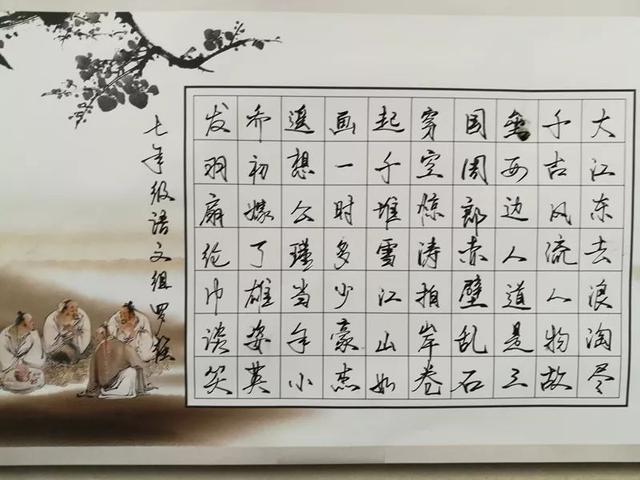 大江东去浪淘尽
千古风流人物故
垒西边人道是三
国周郎赤壁乱石
穿空惊涛拍岸卷
起千堆雪江山如
画一时多少豪杰
遥想公瑾当年小
乔初嫁了雄姿英
发羽扇纶巾谈笑
七年级语文组罗